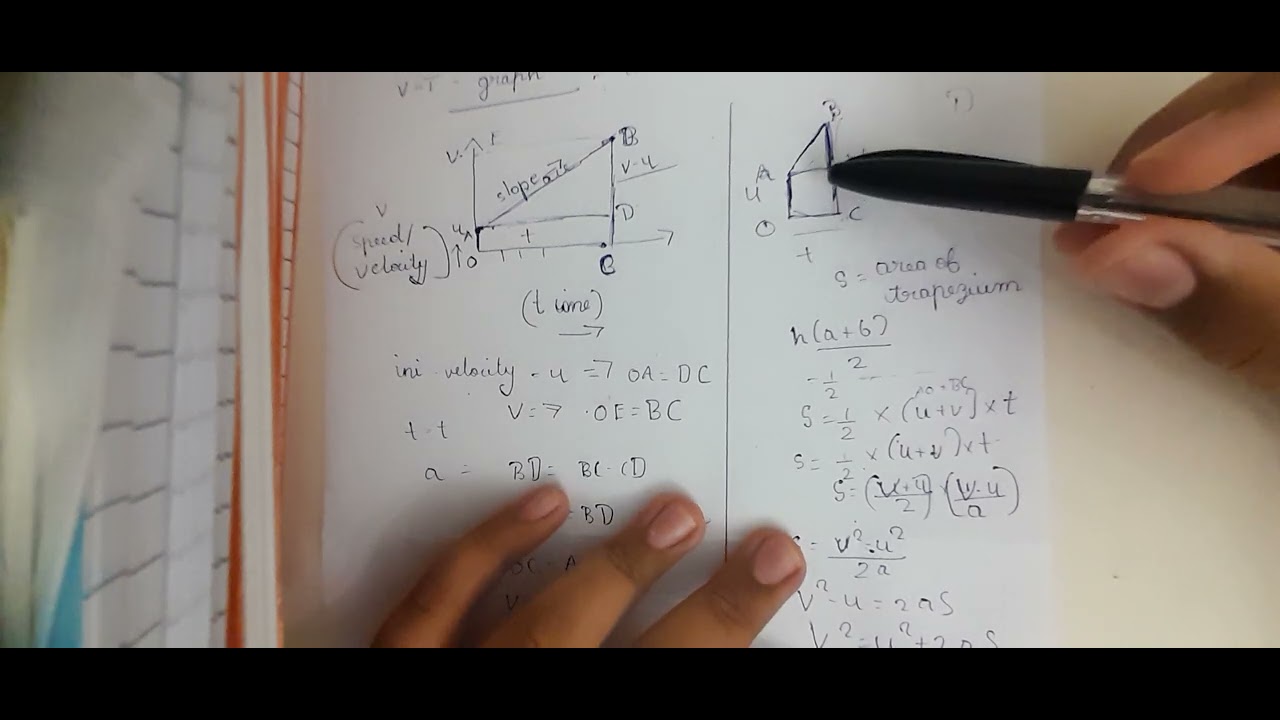 V-T - graph
V
E
B
slope
V-u
u
A
D
t
O
C
V
(speed/
velocity)
(time)
ini. velocity - u => OA = DC
V => OE = BC
t - t
a = BD = BC - CD
= BD
B
A
u
O
C
t
S = area of
trapezium
h(a+b)
2
1/2
AO + BC
S = 1/2 × (u+v) × t
S = 1/2 × (u+v) × t
S = (v+u/2) (v-u/a)
= v²-u²/2a
V²-u = 2aS
V² = u² + 2aS